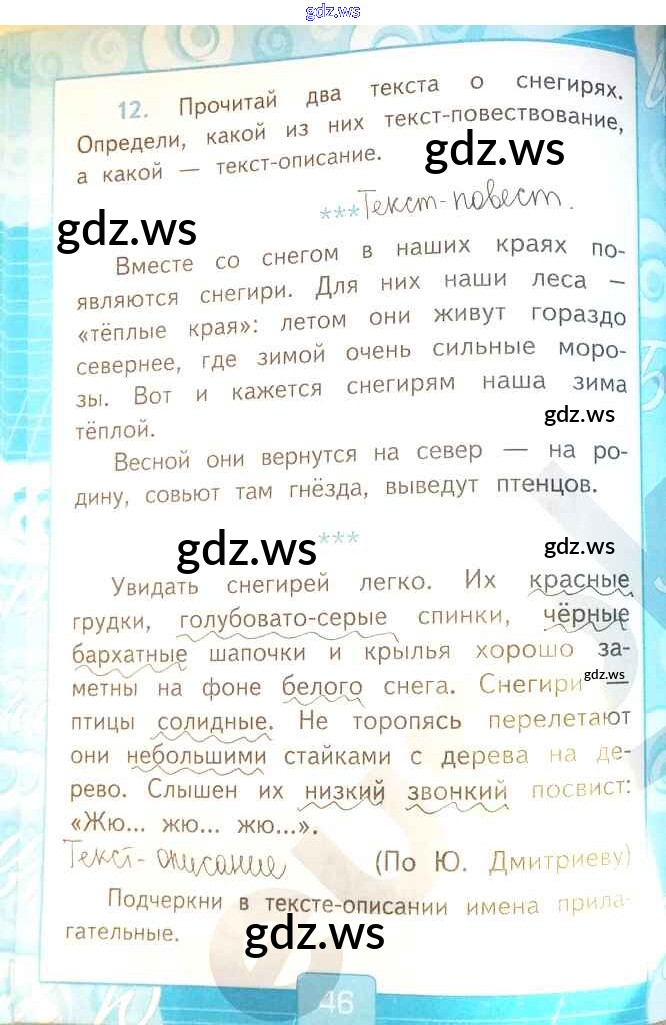 gdz.ws
12. Прочитай два текста о снегирях.
Определи, какой из них текст-повествование,
а какой — текст-описание.
gdz.ws
*** Текст-повест.
gdz.ws
Вместе со снегом в наших краях по-
являются снегири. Для них наши леса —
«тёплые края»: летом они живут гораздо
севернее, где зимой очень сильные моро-
зы. Вот и кажется снегирям наша зима
тёплой.
gdz.ws
Весной они вернутся на север — на ро-
дину, совьют там гнёзда, выведут птенцов.
gdz.ws
***
gdz.ws
Увидать снегирей легко. Их красные
грудки, голубовато-серые спинки, чёрные
бархатные шапочки и крылья хорошо за-
gdz.ws
метны на фоне белого снега. Снегири —
птицы солидные. Не торопясь перелетают
они небольшими стайками с дерева на де-
рево. Слышен их низкий звонкий посвист:
«Жю... жю... жю...».
Текст-описание (По Ю. Дмитриеву)
Подчеркни в тексте-описании имена прила-
гательные.
gdz.ws
46